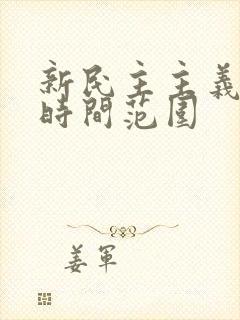 新民主主義
時間范圍
姜軍